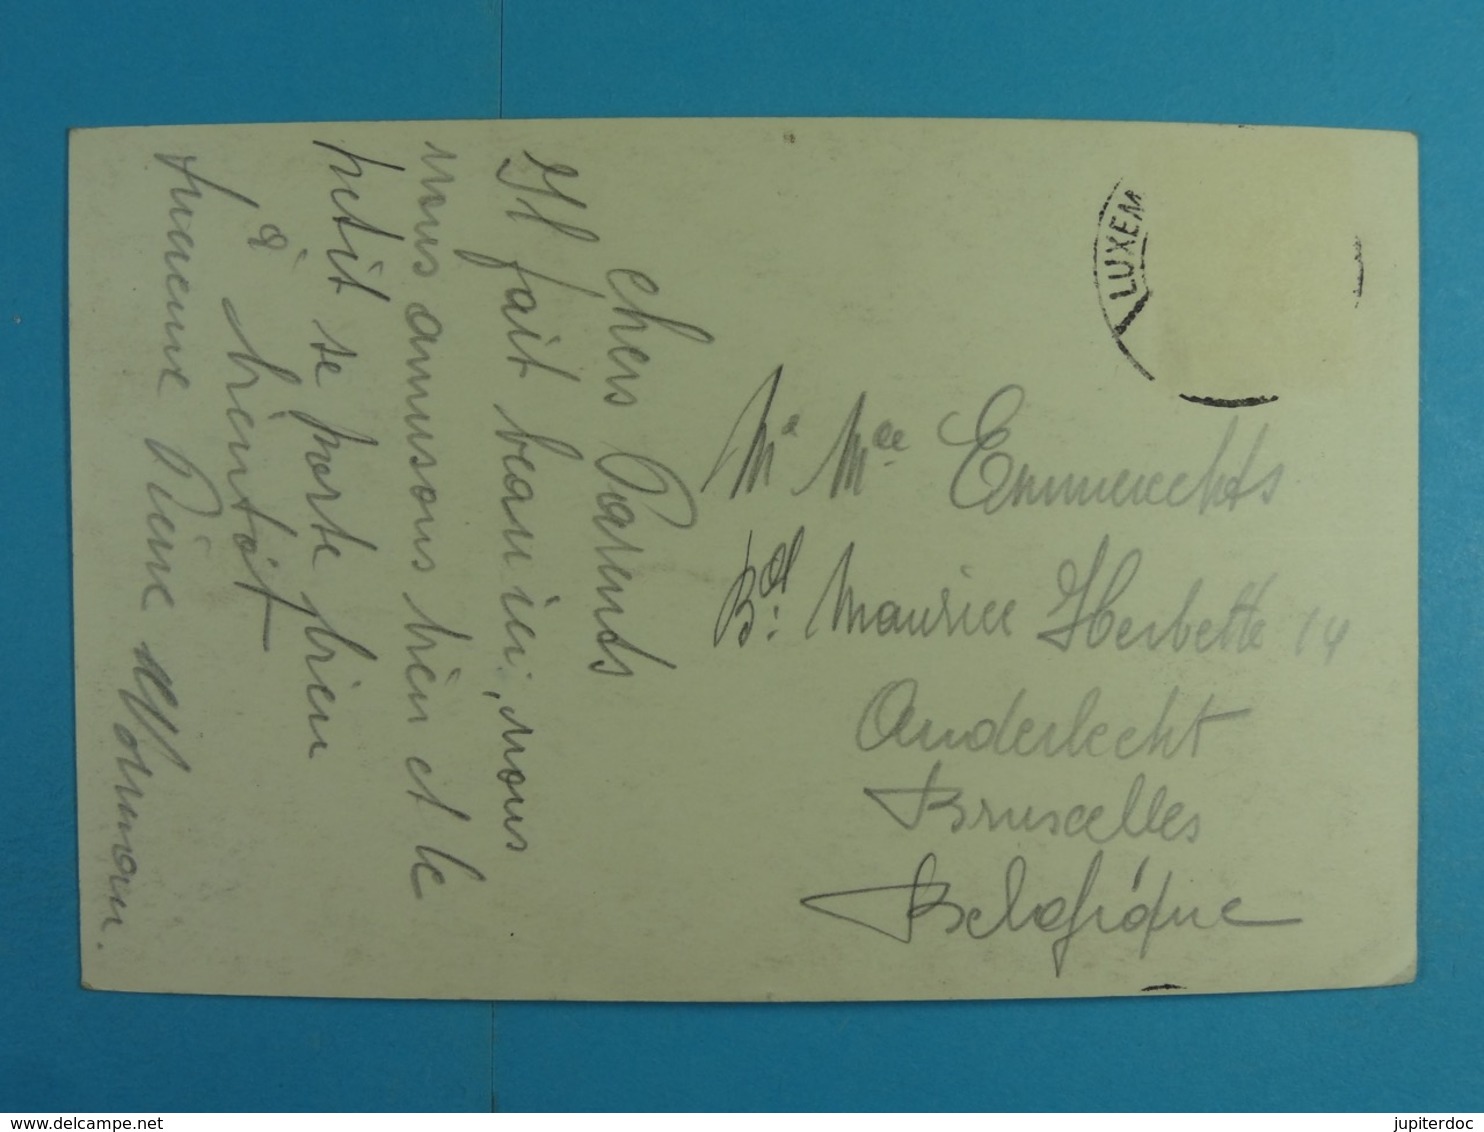 Chers Parents
Il fait beau ici, nous
nous amusons bien et le
petit se porte bien
à bientôt
LUXEM
Mr Mme Emmerechts
Bd. Maurice Herbette 14
Anderlecht
Bruxelles
Belgique
delcampe.net
jupiterdoc